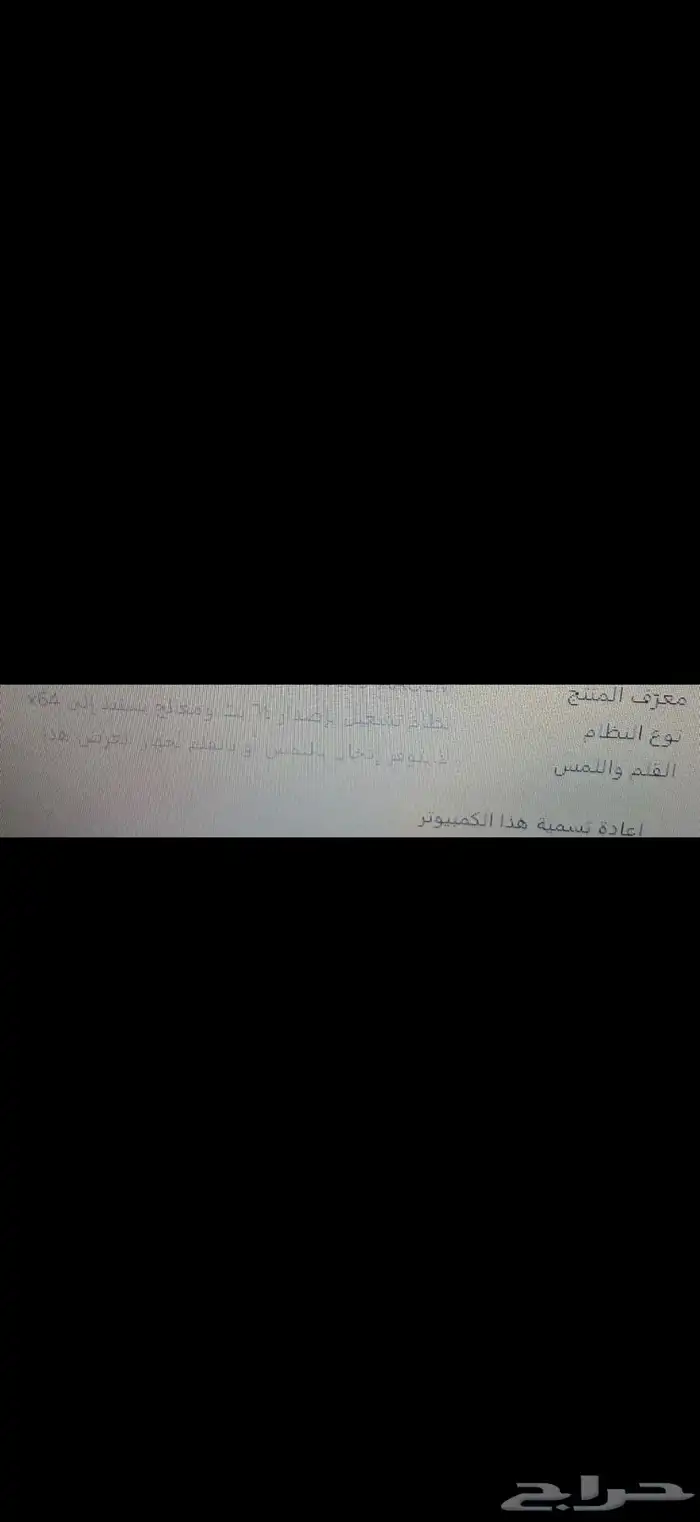 معرّف المنتج
نوع النظام نظام تشغيل بإصدار 64 بت ومعالج يستند إلى x64
القلم واللمس لا يتوفر إدخال باللمس أو بالقلم لجهاز العرض هذا
إعادة تسمية هذا الكمبيوتر
حراج